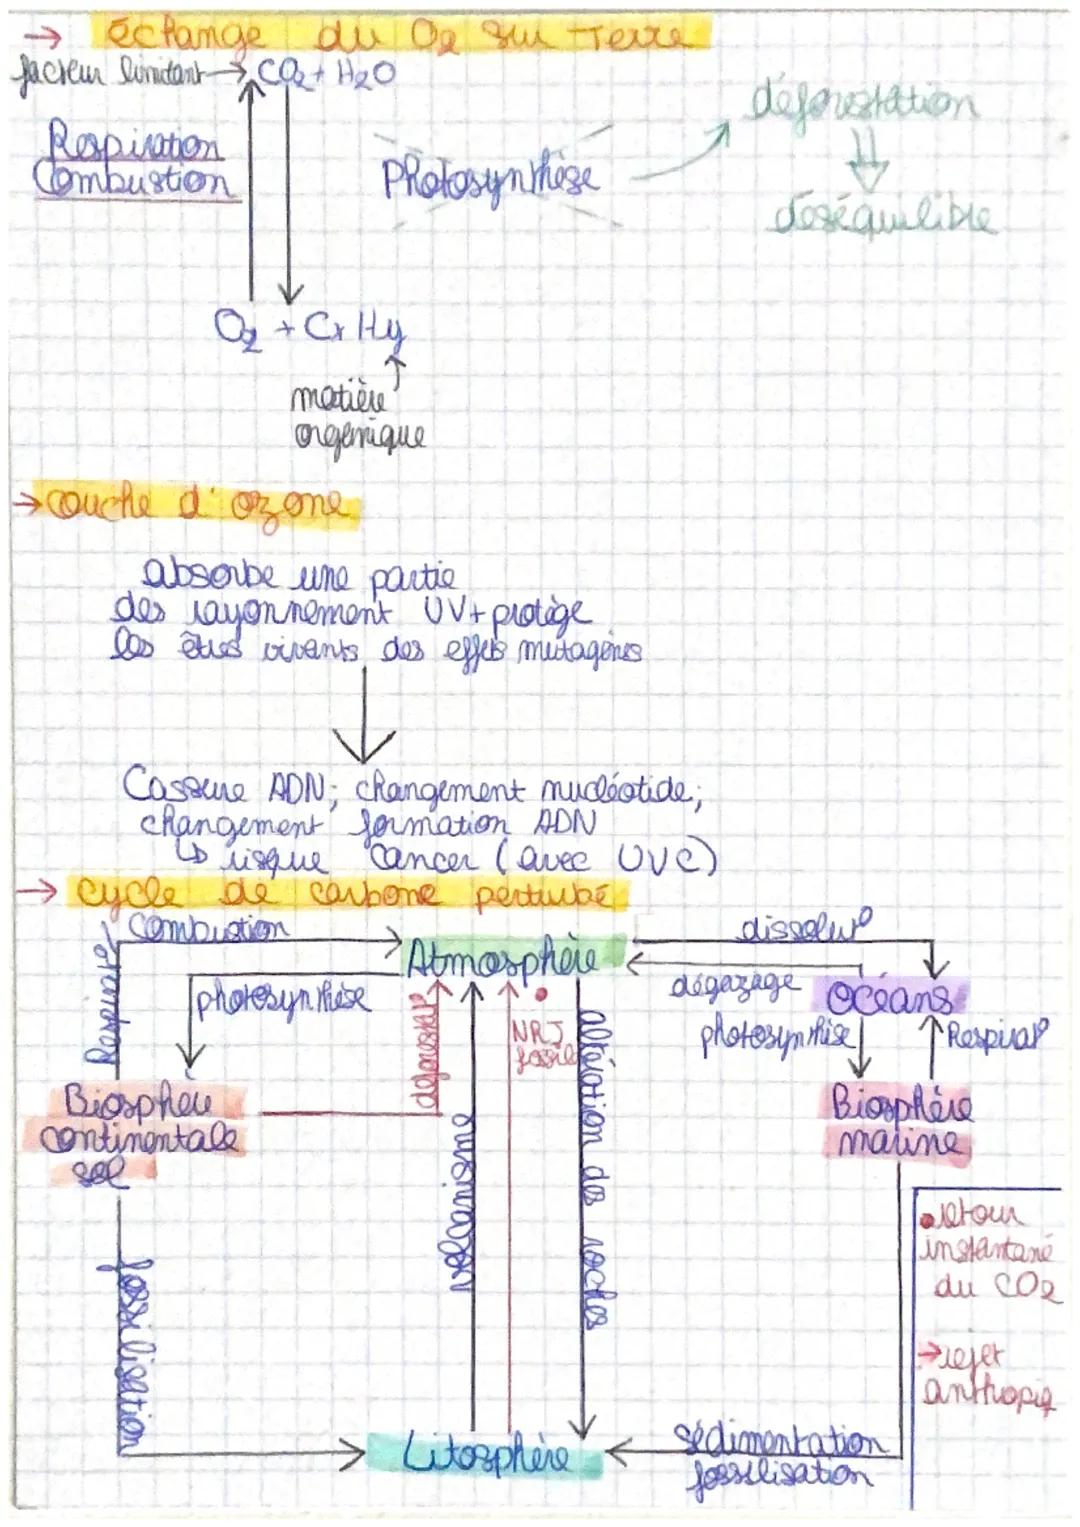 → échange du O2 sur Terre
facteur limitant → CO2 + H2O
Respiration
Combustion
Photosynthèse
déforestation
déséquilibre
O2 + Cx Hy
matière
organique
→ couche d'ozone
absorbe une partie
des rayonnement UV + protège
les êtres vivants des effets mutagènes
Cassure ADN; changement nucléotide;
changement formation ADN
↳ risque cancer (avec UVC)
→ cycle de carbone perturbé
Combustion
Respirat°
photosynthèse
Atmosphère
dissolut°
dégazage
Océans
photosynthèse
Respirat°
déforestat°
NRJ
fossile
volcanisme
altération des roches
Biosphère
continentale
sol
Biosphère
marine
fossilisation
• retour
instantané
du CO2
→ rejet
anthropiq
Litosphère
sédimentation
fossilisation